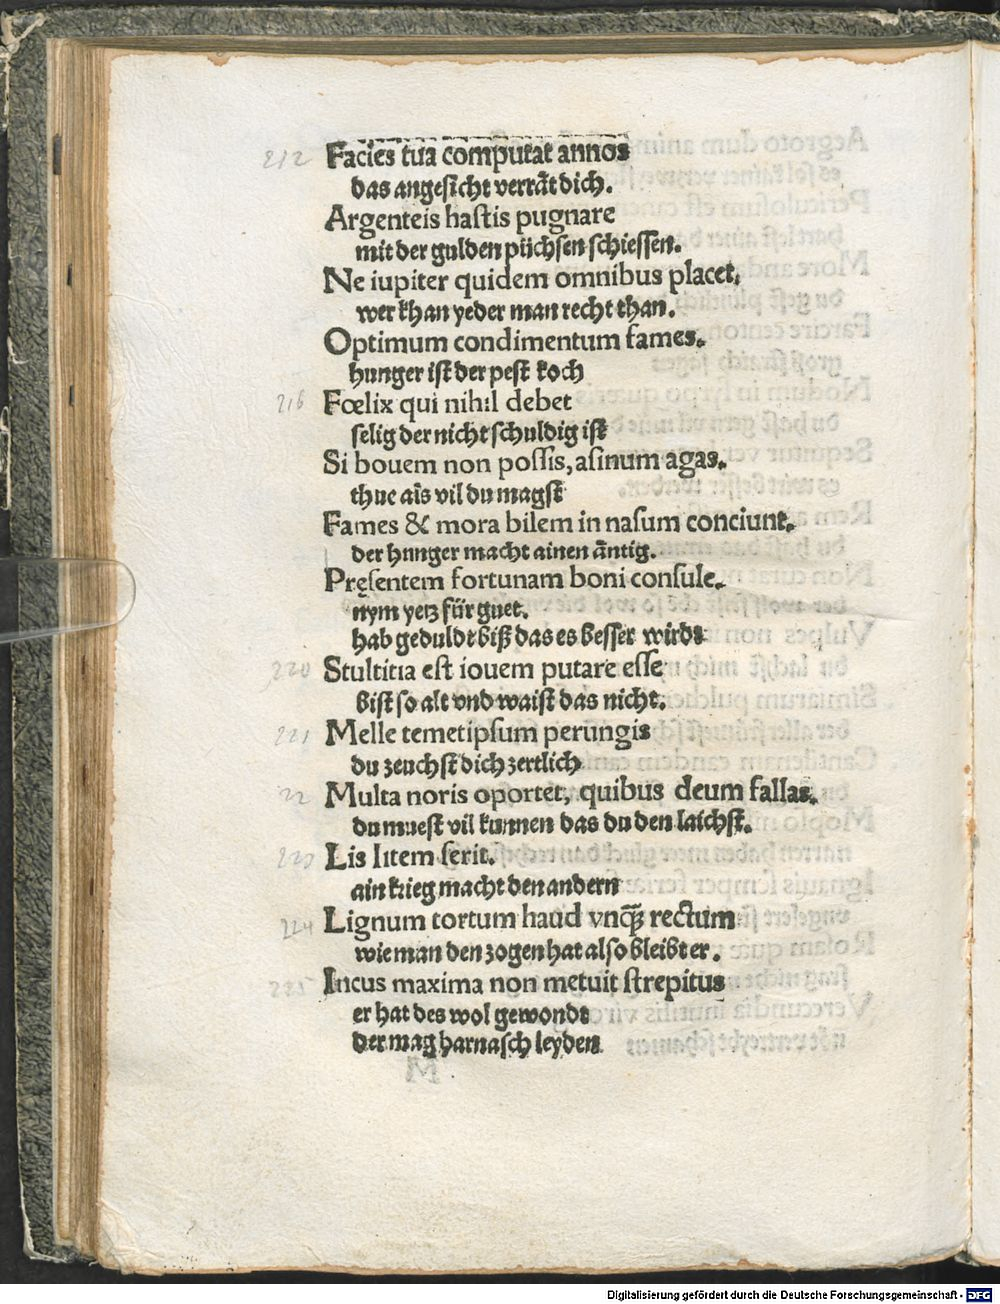 212 Facies tua computat annos
das angesicht verrāt dich.
Argenteis hastis pugnare
mit der gulden püchsen schiessen.
Ne iupiter quidem omnibus placet.
wer khan yeder man recht than.
Optimum condimentum fames.
hunger ist der pest koch
216 Fœlix qui nihil debet
selig der nicht schuldig ist
Si bouem non possis, asinum agas.
thue als vil du magst
Fames & mora bilem in nasum conciunt.
der hunger macht ainen āntig.
Pręsentem fortunam boni consule.
nym yetz für guet.
hab geduldt biß das es besser wirdt
220 Stultitia est iouem putare esse
bist so alt vnd waist das nicht.
221 Melle temetipsum perungis
du zeuchst dich zertlich
22 Multa noris oportet, quibus deum fallas.
du muest vil kunnen das du den laichst.
223 Lis litem serit.
ain krieg macht den andern
224 Lignum tortum haud vnq̃ȝ rectum
wie man den zogen hat also bleibt er.
225 Incus maxima non metuit strepitus
er hat des wol gewondt
der mag harnasch leyden
Digitalisierung gefördert durch die Deutsche Forschungsgemeinschaft - DFG